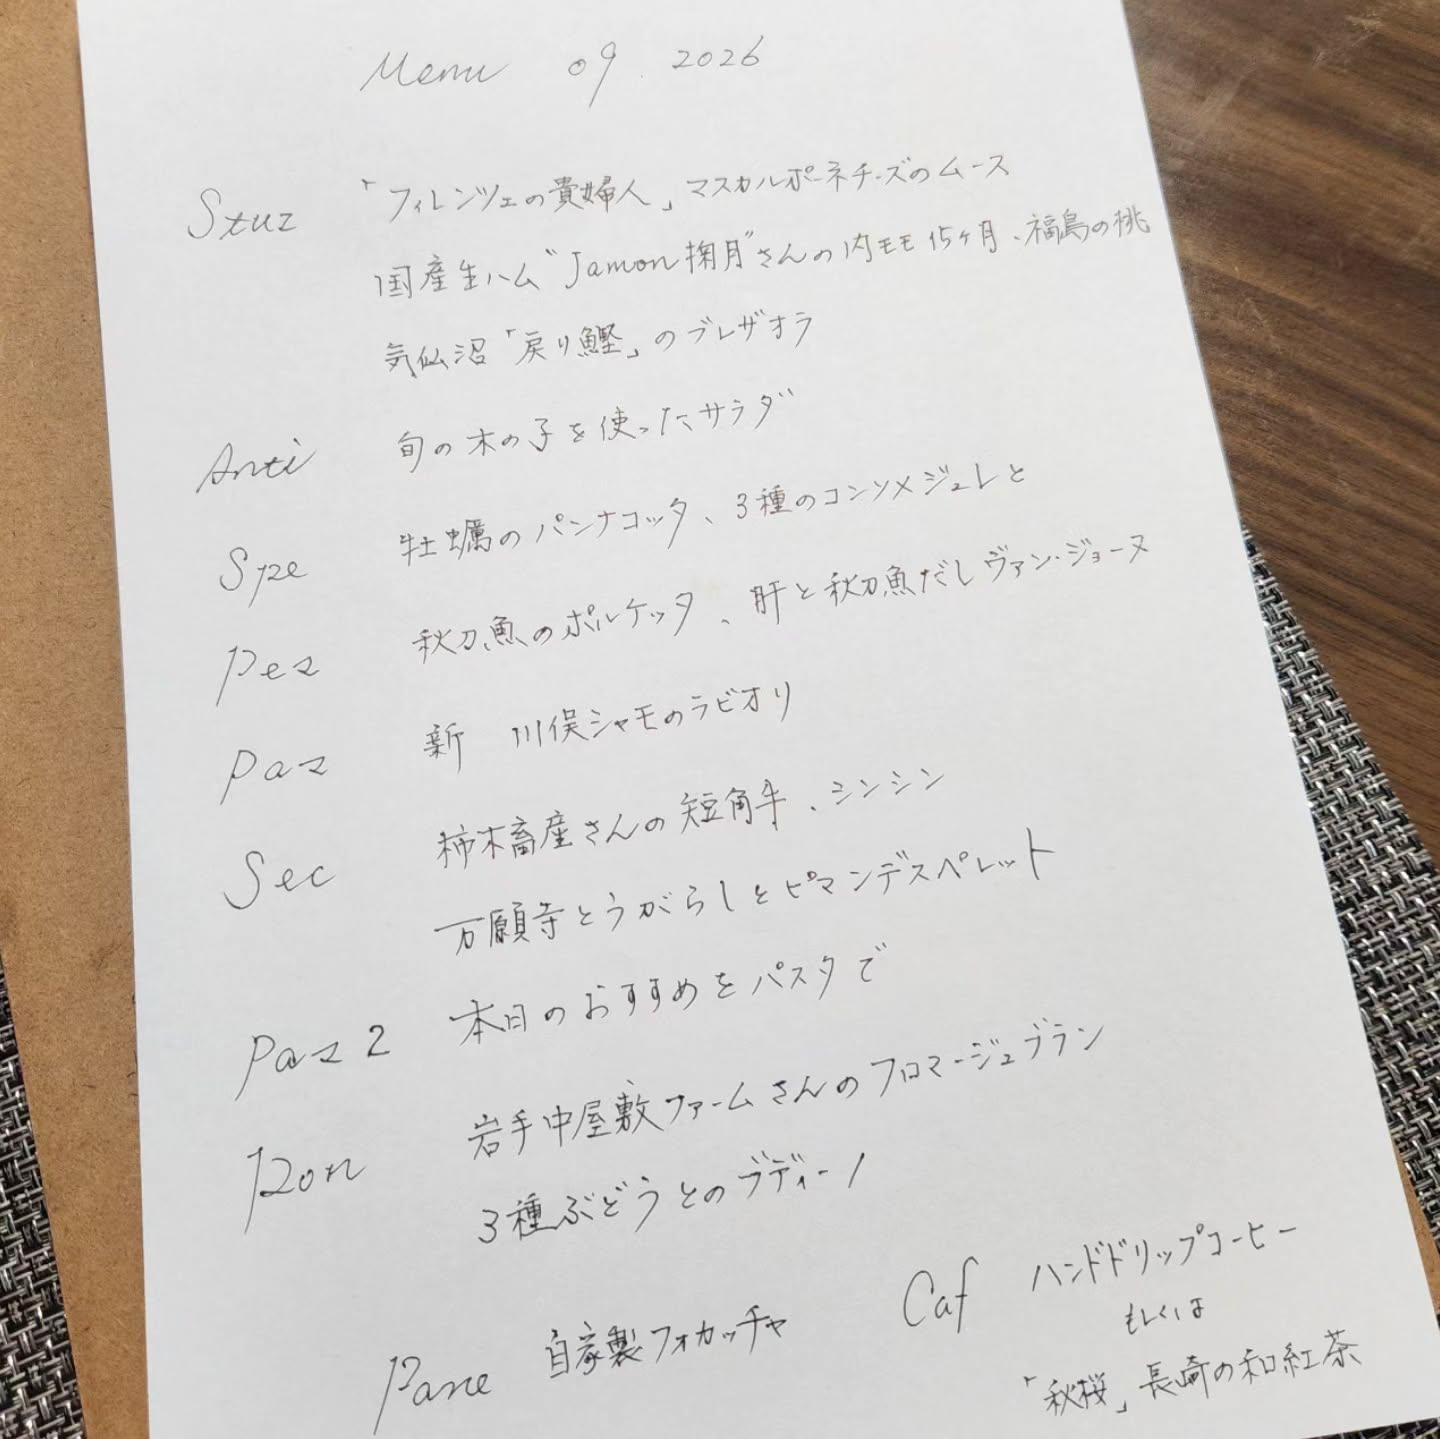 Menu 09. 2026
Stuz 「フィレンツェの貴婦人」マスカルポーネチーズのムース
国産生ハム"Jamon掬月"さんの内モモ15ヶ月、福島の桃
気仙沼「戻り鰹」のブレザオラ
Anti 旬の木の子を使ったサラダ
Spe 牡蠣のパンナコッタ、3種のコンソメジュレと
Pez 秋刀魚のポルケッタ、肝と秋刀魚だしヴァン・ジョーヌ
Paz 新 川俣シャモのラビオリ
Sec 柿木畜産さんの短角牛、シンシン
万願寺とうがらしとピマンデスペレット
Paz 2 本日のおすすめをパスタで
岩手中屋敷ファームさんのフロマージュブラン
Don 3種ぶどうとのブディーノ
Pane 自家製フォカッチャ
Caf ハンドドリップコーヒー
もしくは
「秋桜」長崎の和紅茶